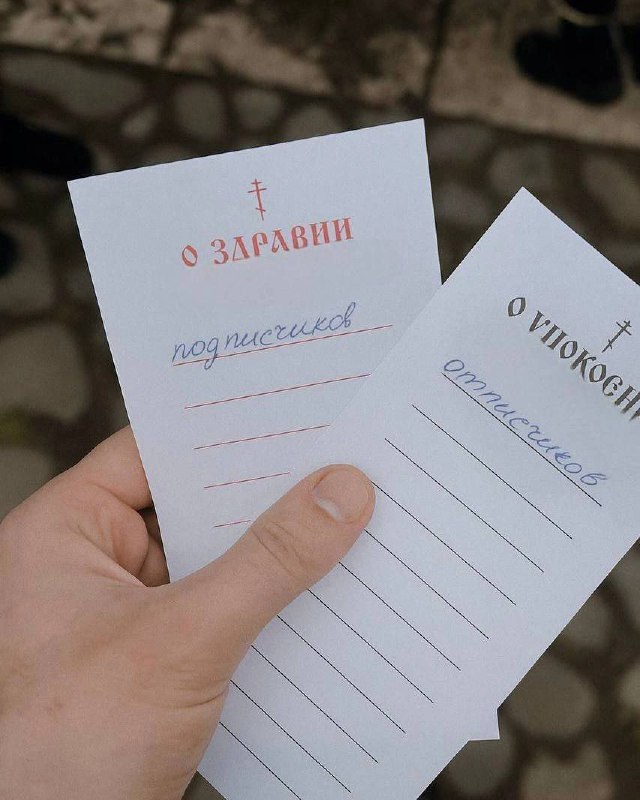 О ЗДРАВИИ
подписчиков
О УПОКОЕН
отписчиков